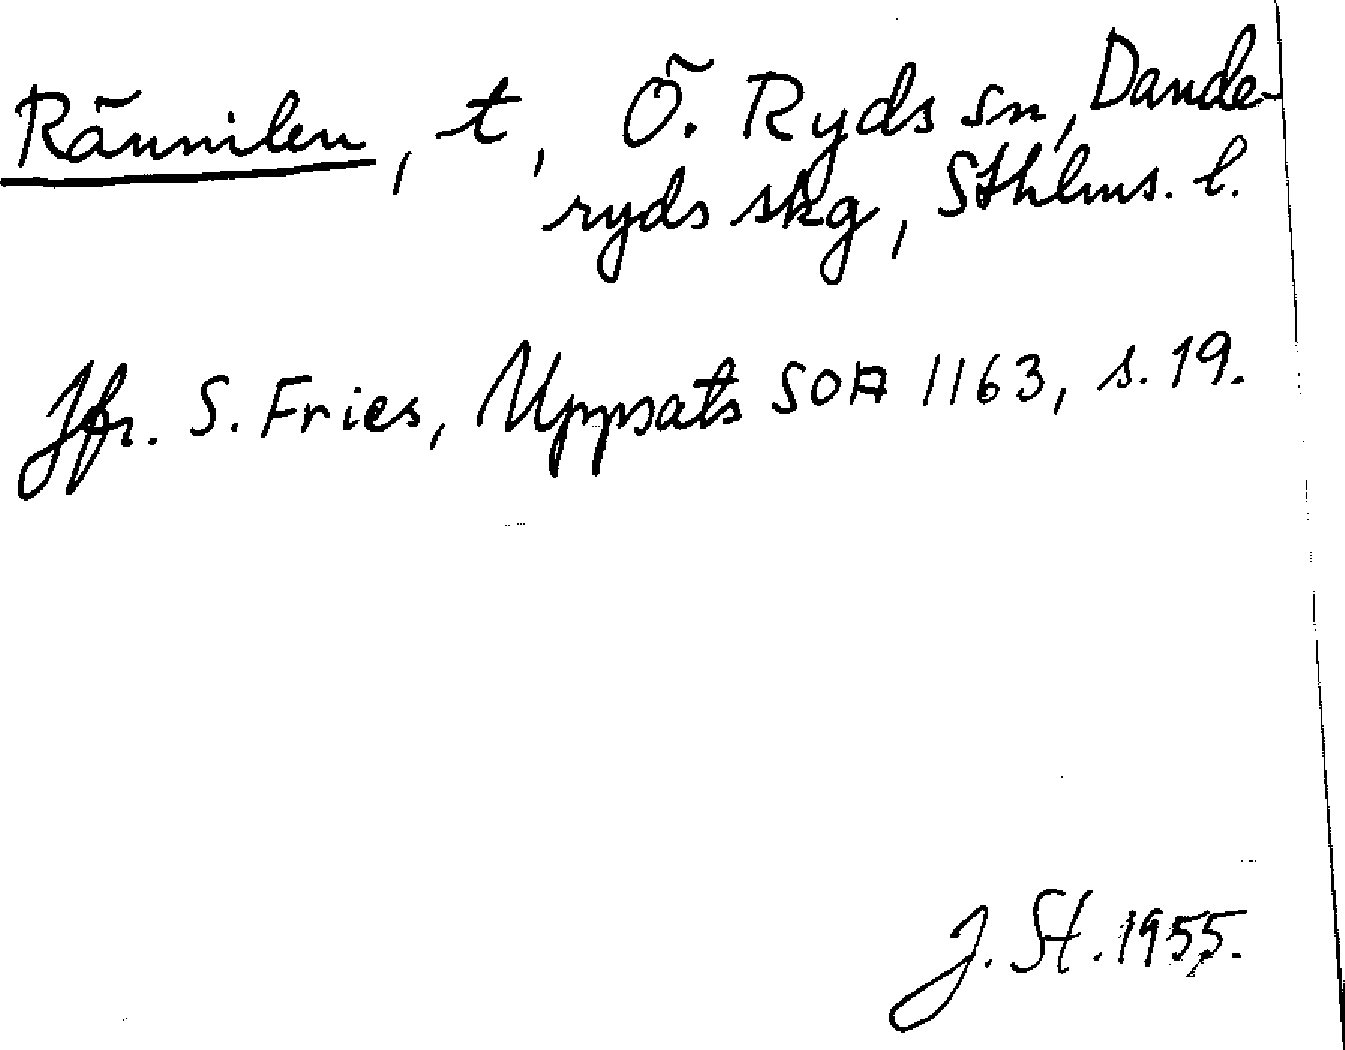 Rännilen, t, Ö. Ryds sn, Dande-
ryds skg, Sthlms. l.
Jfr. S. Fries, Uppsats SOA 1163, s. 19.
J. St. 1955.